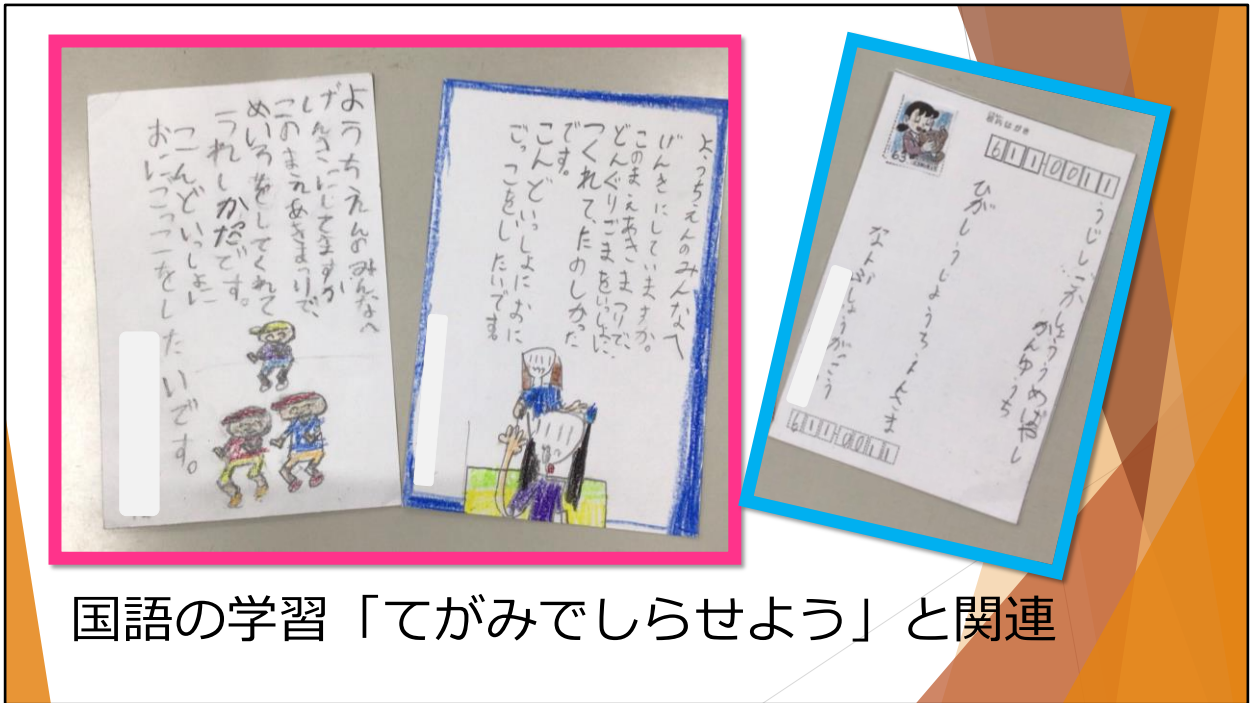 ようちえんのみんなへ
げんきにしてますか
このまえあきまつりで、
めいろをしてくれて
うれしかたです。
こんどいっしょに
おにごっこをしたいです。
ようちえんのみんなへ
げんきにしていますか。
このまえあきまつりで、
どんぐりごまをいっしょに、
つくれて、たのしかった
です。
こんどいっしょにおに
ごっこをしたいです。
郵便はがき
63
611-0011
うじしごかしょううめばやし
かんゆうち
ひがしうじようちえんさま
なんぶしょうがっこう
611-0011
国語の学習「てがみでしらせよう」と関連